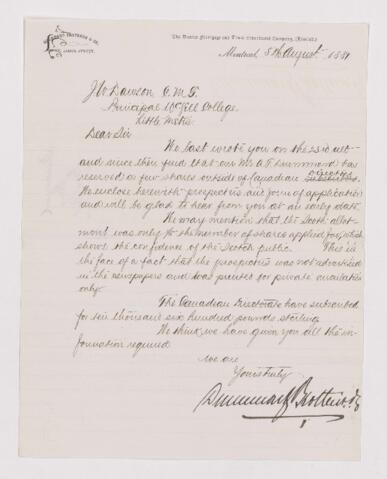 The Boston Mortgage and Town Investment Company, (Limited)
Drummond Brothers & Co.
James Street.
Montreal, 5th August 1881
J W Dawson C.M.G.
Principal McGill College
Little Metis
Dear Sir
We last wrote you on the 23rd ult
and since then find that our Mr A F Drummond has
reserved a few shares outside of Canadian directors
We enclose herewith prospectus and form of application
and will be glad to hear from you at an early date.
We may mention that the Scotch allot-
ment was only to the number of shares applied for, which
shows the confidence of the Scotch public. This in
the face of a fact that the prospectus was not advertised
in the newspapers and was printed for private circulation
only.
The Canadian Directorate have subscribed
for six thousand six hundred pounds sterling.
We think we have given you all the in-
formation required
We are
Yours truly
Drummond Brothers & Co